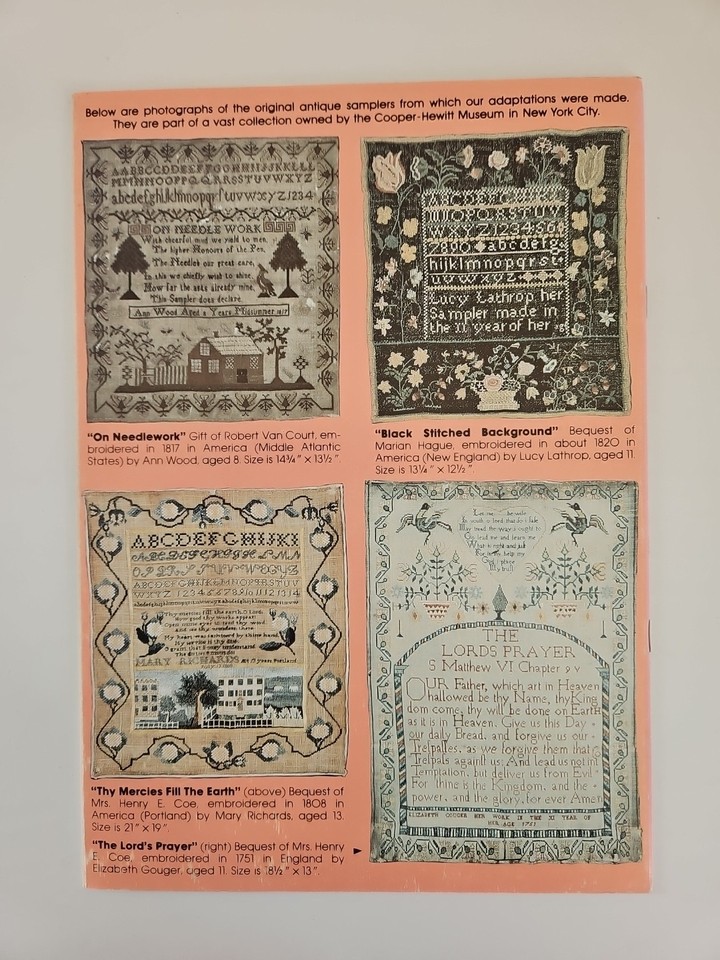 Below are photographs of the original antique samplers from which our adaptations were made.
They are part of a vast collection owned by the Cooper-Hewitt Museum in New York City.
AABBCCDDEEFFGGHHIIJJKKLLL
MMNNOOPPQQRRSSTUVWXYZ
abcdefghijklmnopqrſstuvwxyz1234
ON NEEDLE WORK
With chearful mind we yield to men
The higher Honours of the Pen
The Needle's our great care
In this we chiefly wish to shine
How far the arts already mine
This Sampler does declare
Ann Wood Aged 8 Years Midsummer 1817
ABCDEFGHIJK
LMNOPQRSTUV
WXYZ123456
7890 abcdefg
hijklmnopqrst
uvwxyz
Lucy Lathrop her
Sampler made in
the 11 year of her
"On Needlework" Gift of Robert Van Court, em-
broidered in 1817 in America (Middle Atlantic
States) by Ann Wood, aged 8. Size is 14¾" × 13½".
"Black Stitched Background" Bequest of
Marian Hague, embroidered in about 1820 in
America (New England) by Lucy Lathrop, aged 11.
Size is 13¼" × 12½"
ABCDEFGHIJKI
ABCDEFGHIJKLMNOPQRSTUV
WXYZ 1234567891011121314
Thy mercies fill the earth O Lord
How good thy works appear
Open mine eyes to read thy word
and see thy wonders there
My heart was fashioned by thine hand
My service is thy due
MARY RICHARDS Æt 13 years Portland
THE
LORDS PRAYER
S Matthew VI Chapter 9 V
OUR Father, which art in Heaven
hallowed be thy Name, thy King
dom come, thy will be done on Earth
as it is in Heaven. Give us this Day
our daily Bread, and forgive us our
Trespasses, as we forgive them that
Trespass against us: And lead us not into
Temptation, but deliver us from Evil
For thine is the Kingdom, and the
power, and the glory, for ever Amen
ELIZABETH GOUGER HER WORK IN THE XI YEAR OF
HER AGE 1751
"Thy Mercies Fill The Earth" (above) Bequest of
Mrs. Henry E. Coe, embroidered in 1808 in
America (Portland) by Mary Richards, aged 13.
Size is 21" × 19".
"The Lord's Prayer" (right) Bequest of Mrs. Henry
E. Coe, embroidered in 1751 in England by
Elizabeth Gouger, aged 11. Size is 18½" × 13".